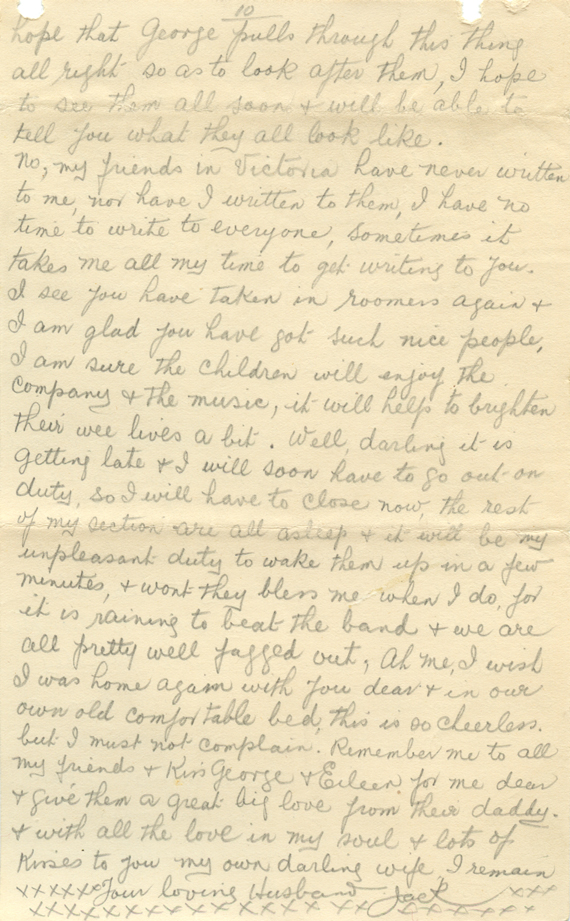 10
hope that George pulls through this thing
all right so as to look after them, I hope
to see them all soon & will be able to
tell you what they all look like.
No, my friends in Victoria have never written
to me, nor have I written to them, I have no
time to write to everyone, sometimes it
takes me all my time to get writing to you.
I see you have taken in roomers again &
I am glad you have got such nice people,
I am sure the children will enjoy the
company & the music, it will help to brighten
their wee lives a bit. Well, darling it is
getting late & I will soon have to go out on
duty, so I will have to close now, the rest
of my section are all asleep & it will be my
unpleasant duty to wake them up in a few
minutes, & wont they bless me when I do, for
it is raining to beat the band & we are
all pretty well fagged out, Ah me, I wish
I was home again with you dear & in our
own old comfortable bed, this is so cheerless.
but I must not complain. Remember me to all
my friends & Kiss George & Eileen for me dear
& give them a great big love from their daddy.
& with all the love in my soul & lots of
Kisses to you my own darling wife, I remain
xxxxx Your loving Husband Jack xxx
xxxxxxxxxxxxxxxxxxx